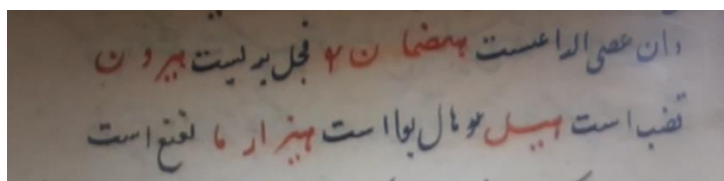 وان عصی الداعست بهضما ن ۲ فجل بولیست بیرون
قضب است بیسل هو مال بوا است بیزار ما نعنع است